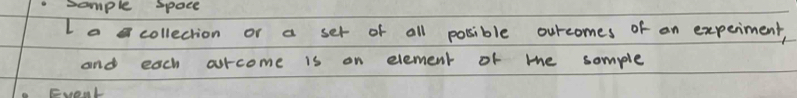 • Sample Space
L a collection or a set of all posible outcomes of an experiment,
and each outcome is an element of the sample
• Event